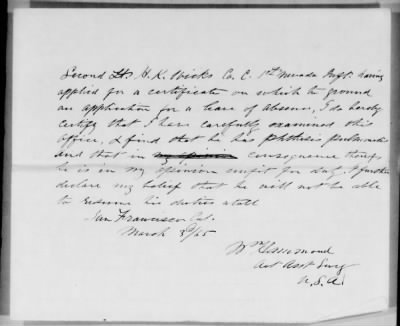 Second Lt. H. K. Wicks Co. C. 1st Nevada Inft. having
applied for a certificate on which to ground
an application for a leave of absence, I do hereby
certify that I have carefully examined this
officer, & find that he has phthisis pulmonalis
and that in my opinion consequence thereof
he is in my opinion unfit for duty. I further
declare my belief that he will not be able
to resume his duties atall
San Francisco Cal.
March 8th/65
Wm Hammond
Act Asst Surg
U.S.A.